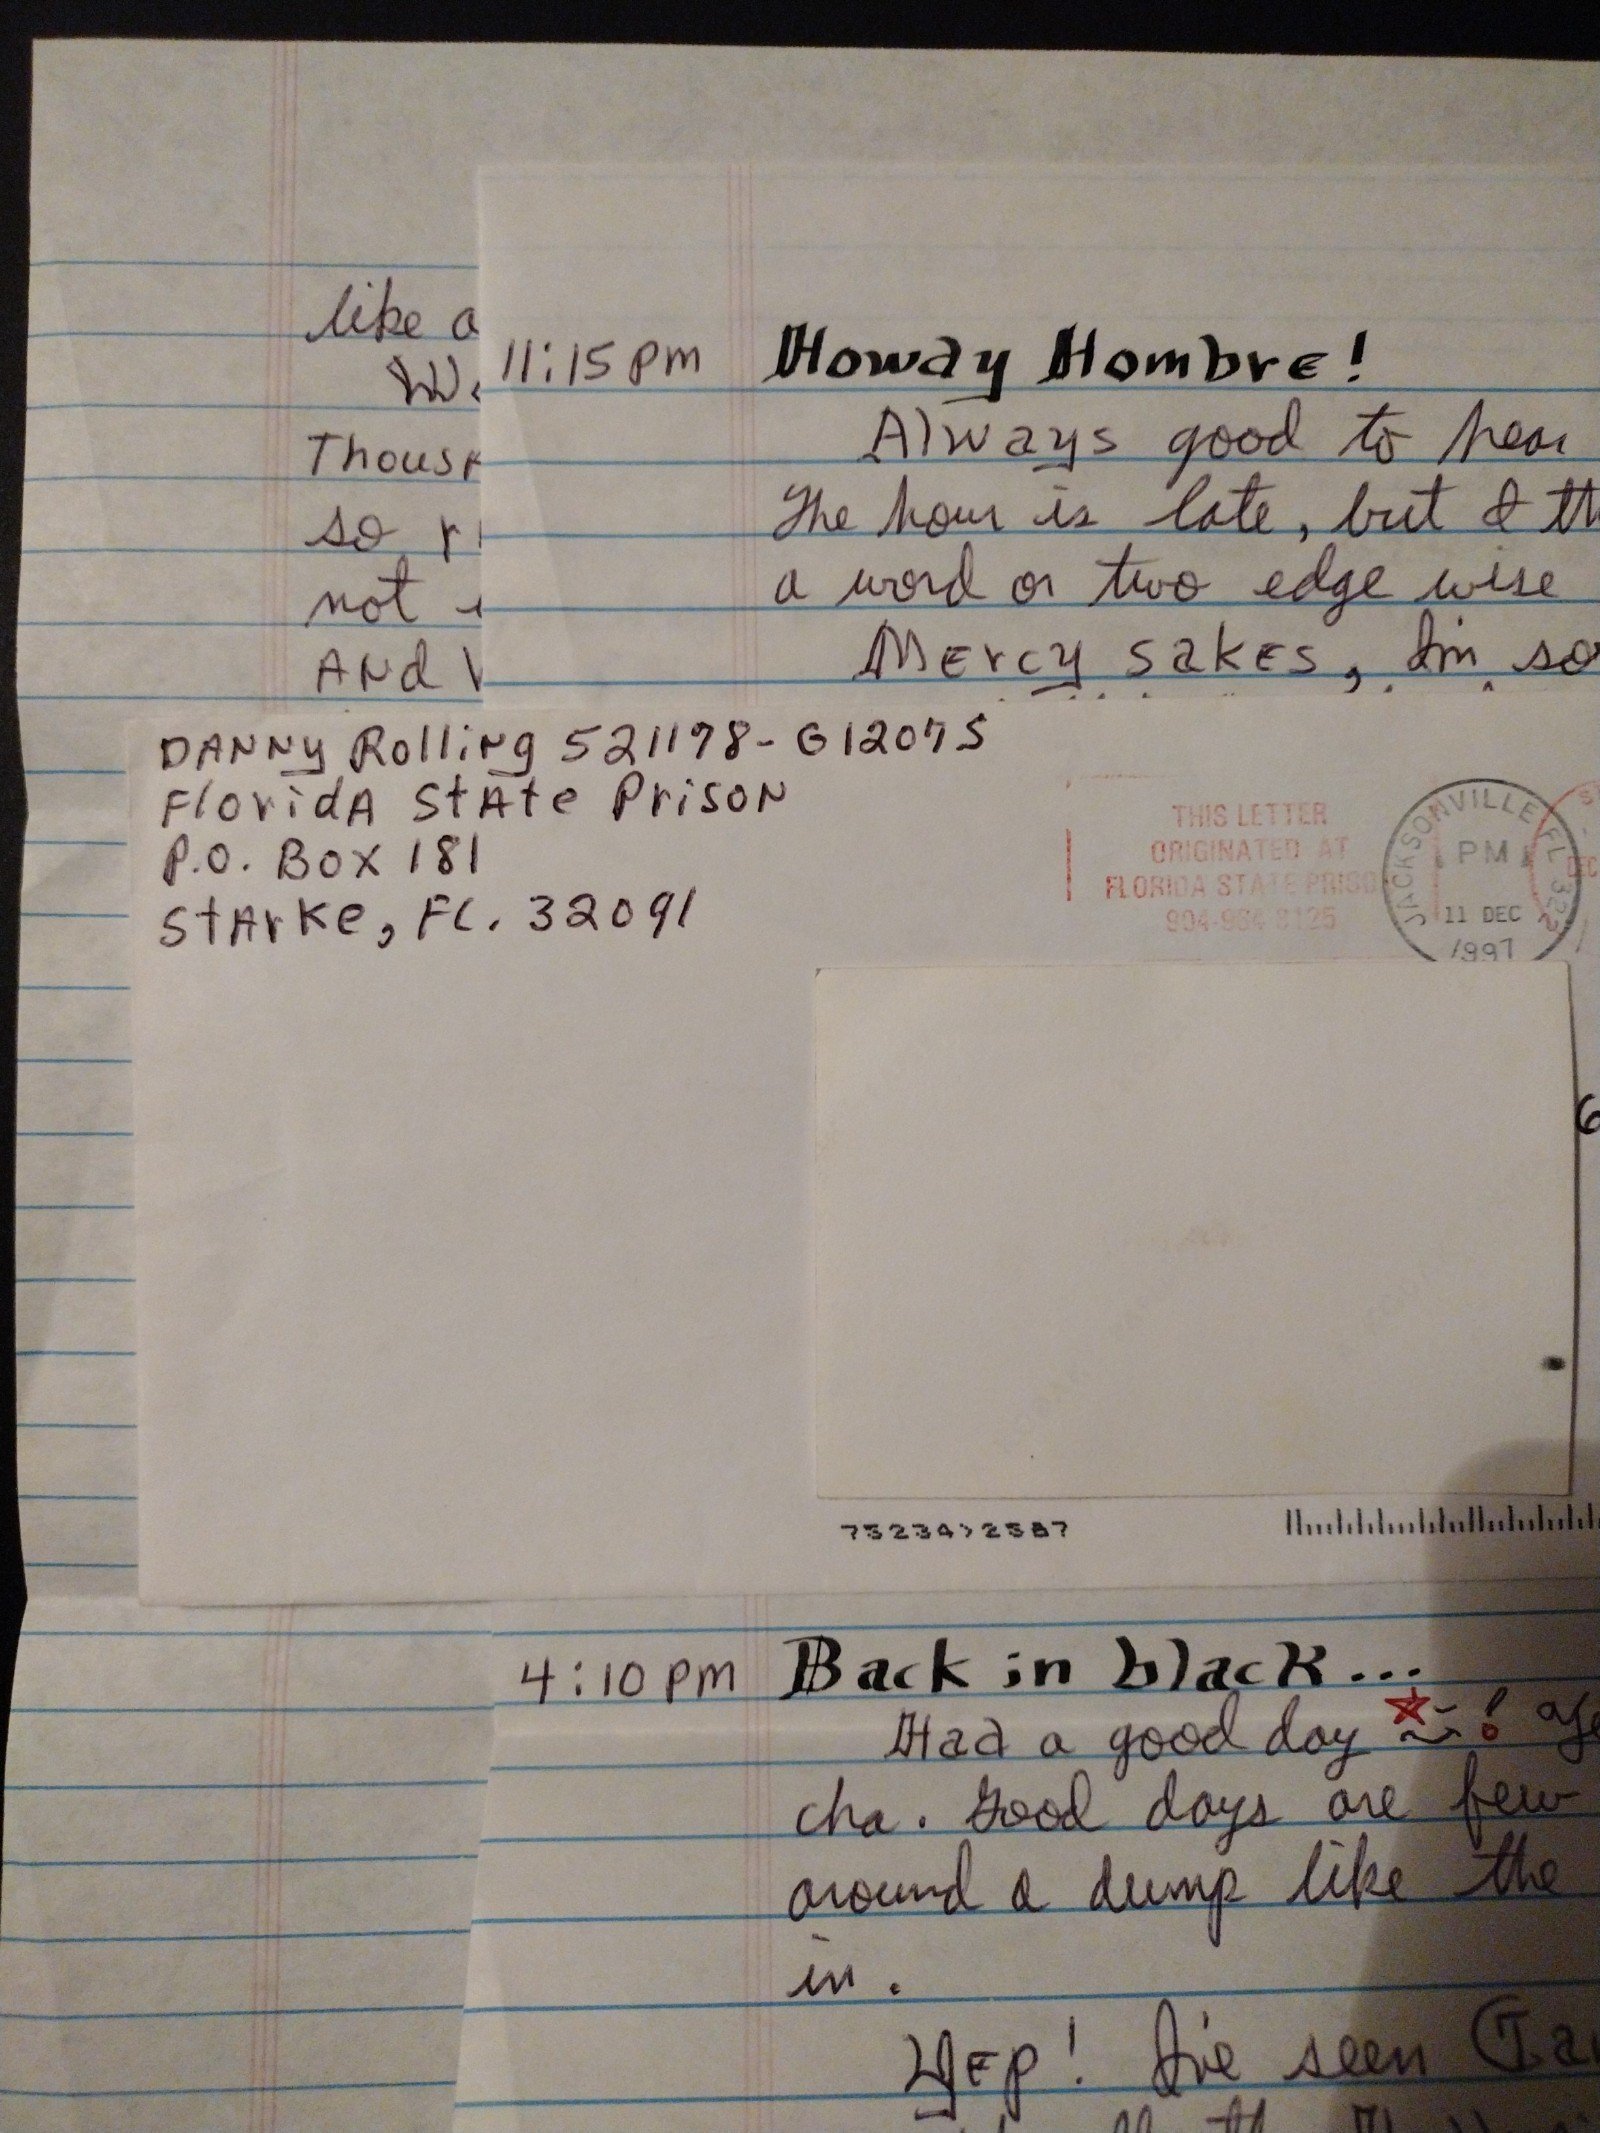 like a
Thous
so
not
AND
11:15 PM Howdy Hombre!
Always good to hear
The hour is late, but I
a word or two edge wise
Mercy sakes, I'm so
DANNY Rolling 521178-G1207S
FloridA StAte PrisoN
P.O. Box 181
StArKe, FL. 32091
THIS LETTER
ORIGINATED AT
FLORIDA STATE PRISO
JACKSONVILLE FL 322
PM
11 DEC
1997
DEC
6
75234>2587
4:10 PM Back in black...
Had a good day !
cha. Good days are few
around a dump like the
in.
Yep! I've seen